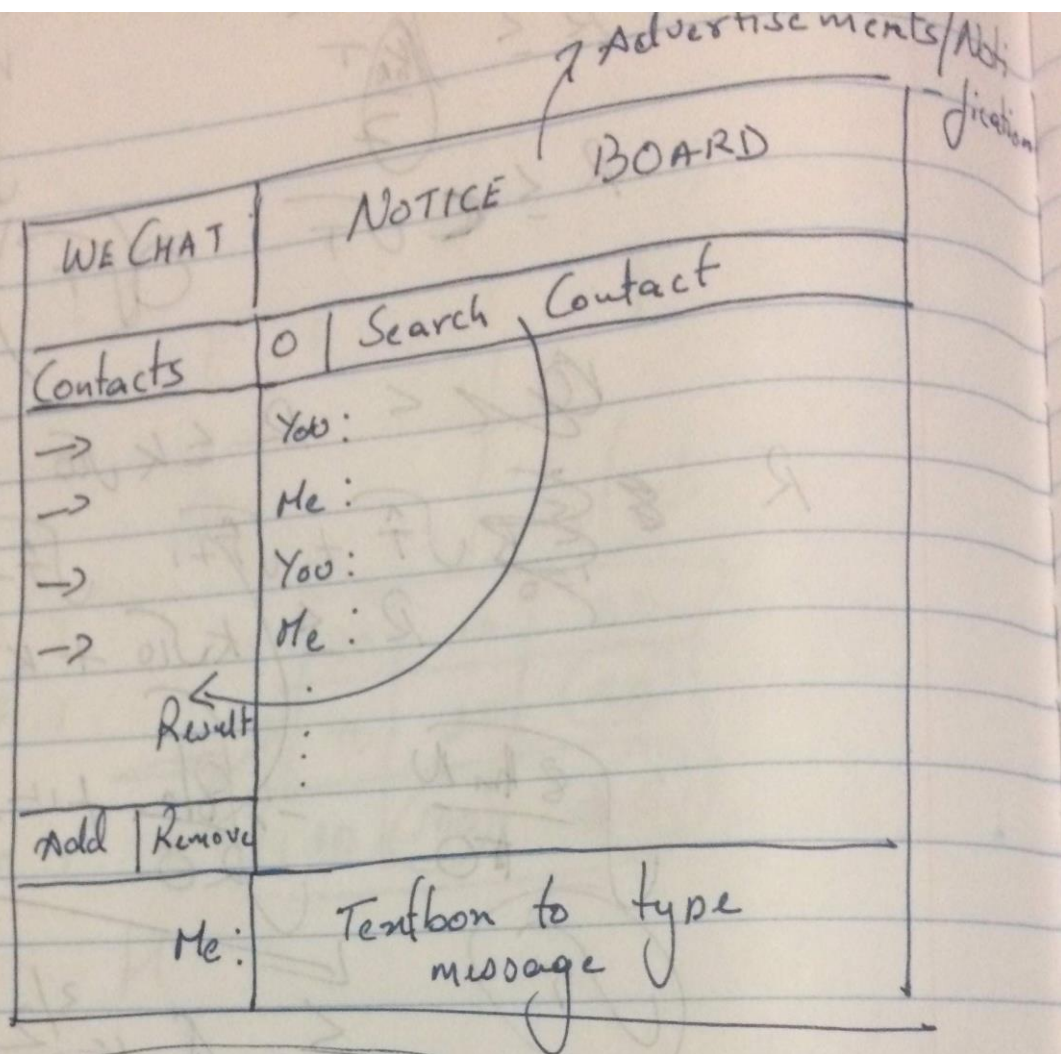 Advertisements/Noti
-fication
WE CHAT
NOTICE BOARD
Contacts
O | Search Contact
→
→
→
→
You:
Me:
You:
Me:
Result
Add | Remove
Me:
Textbox to type
message